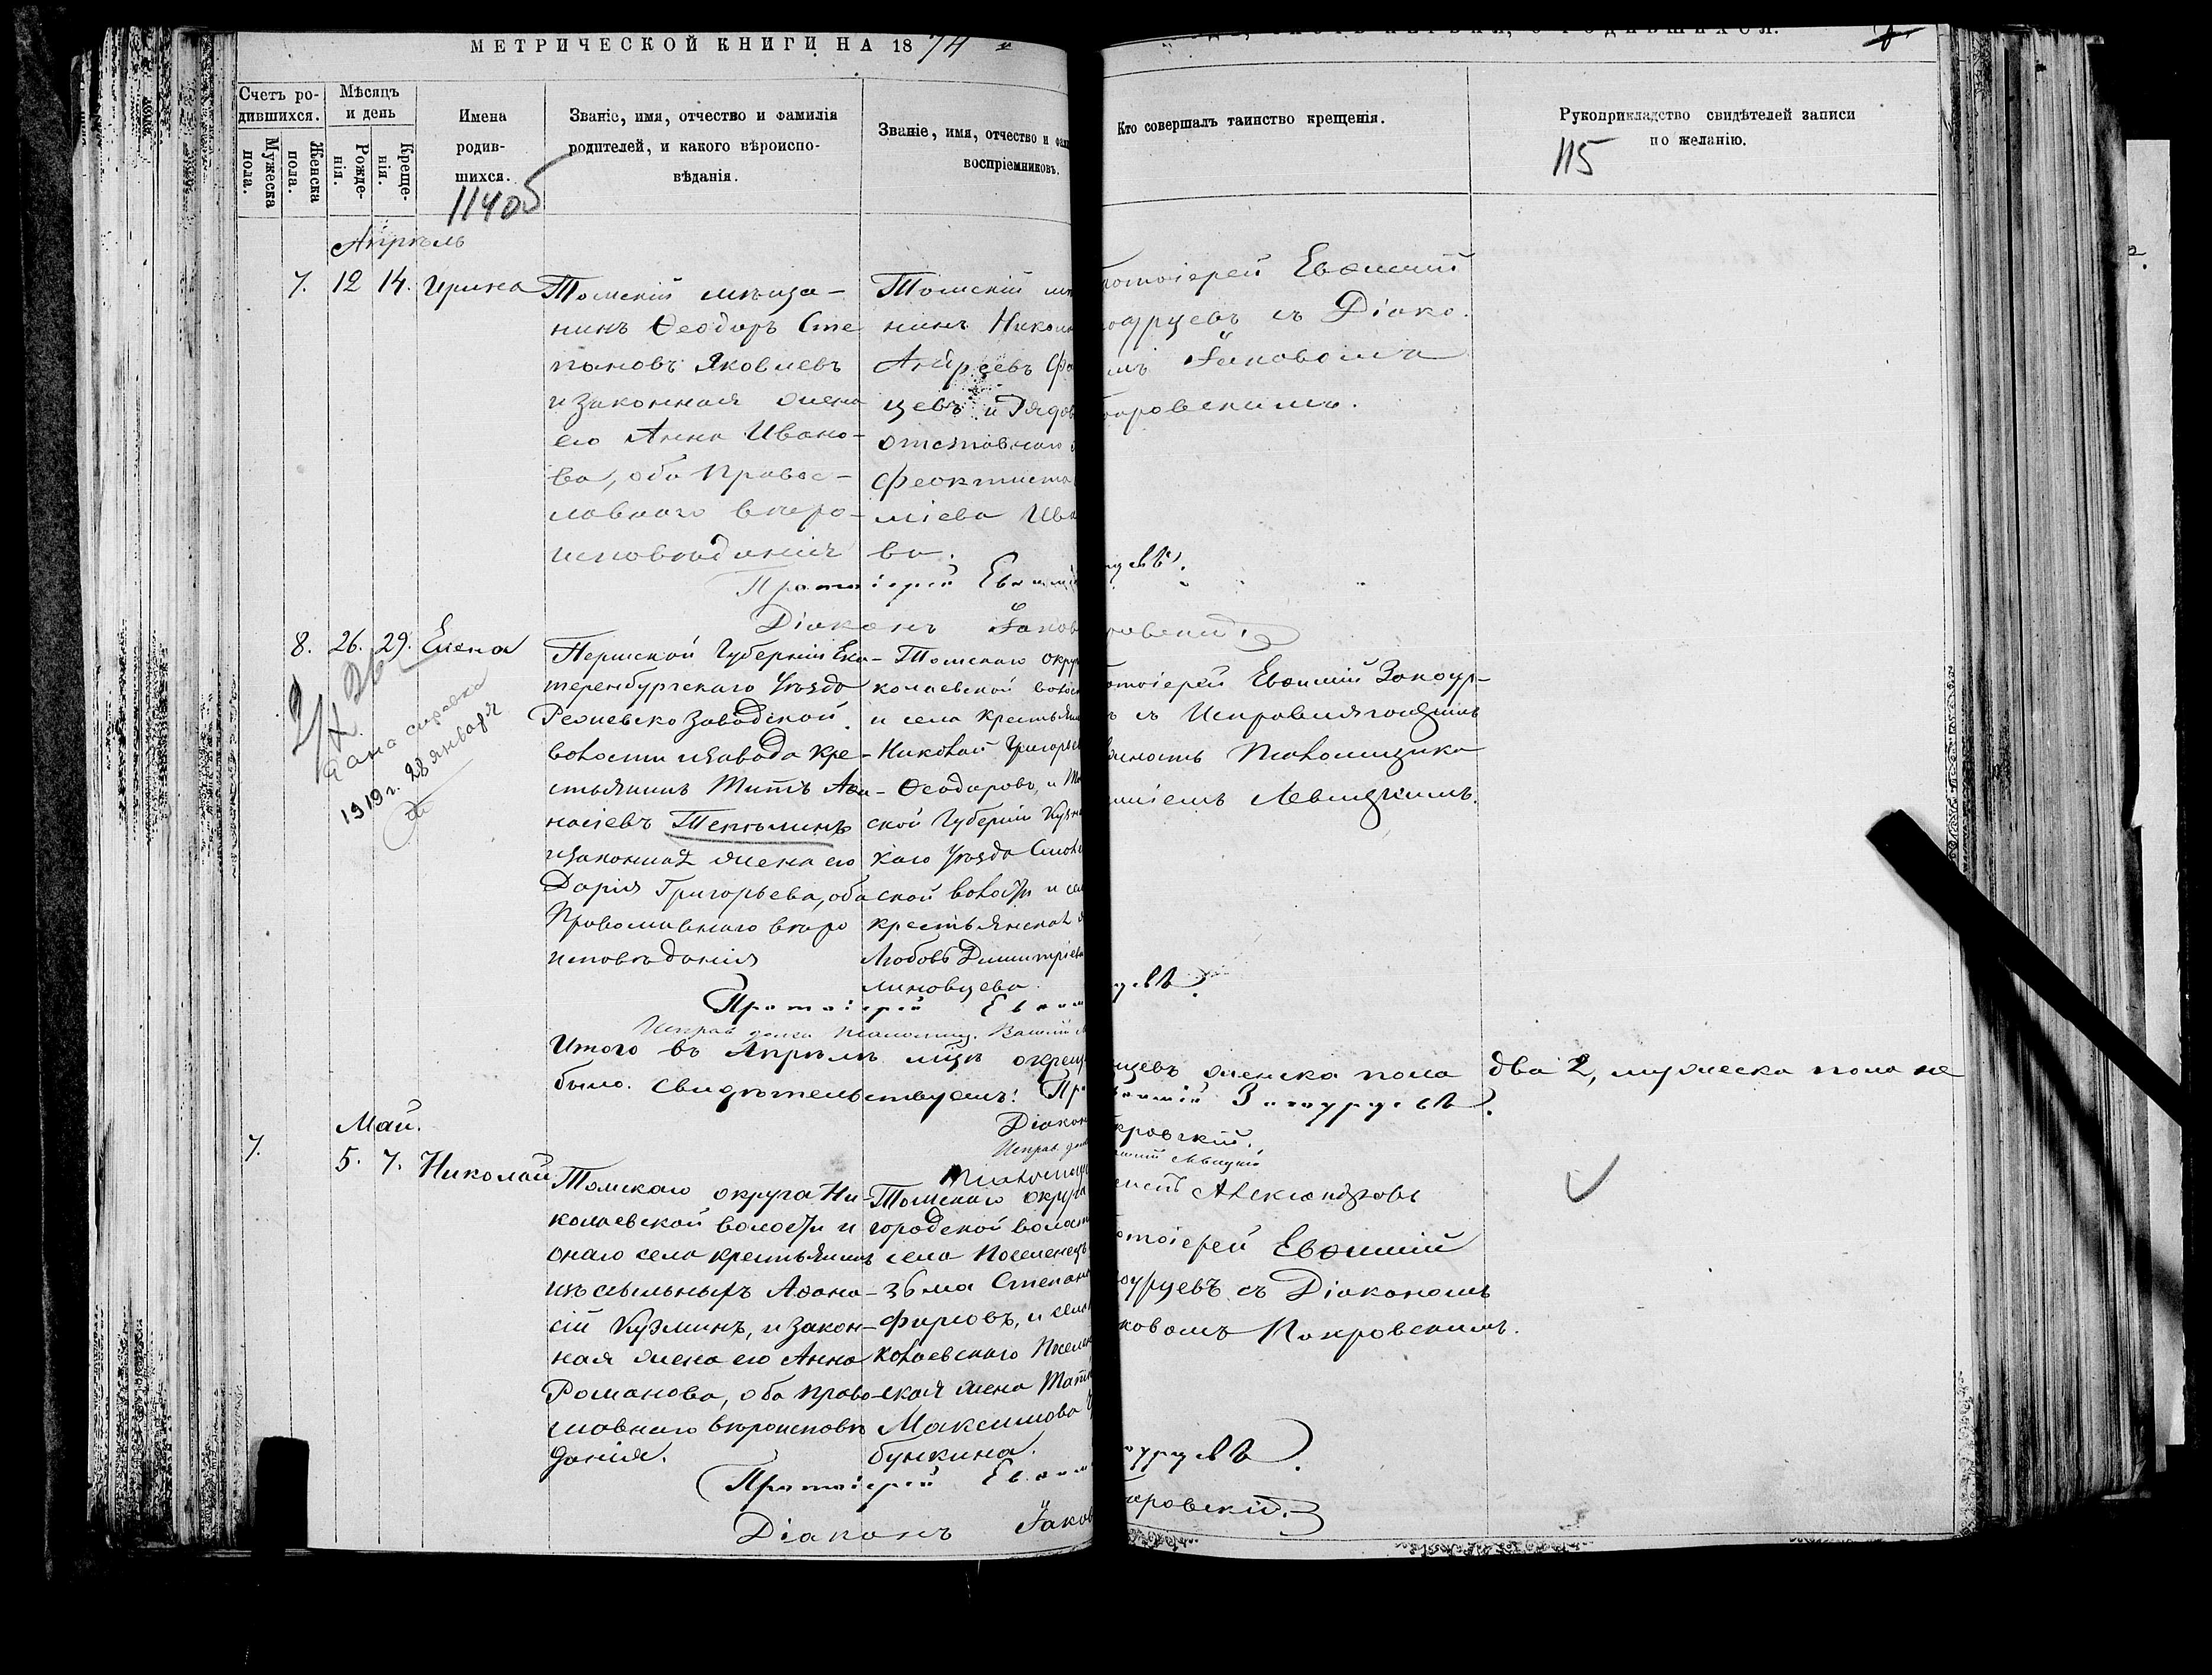 МЕТРИЧЕСКОЙ КНИГИ НА 1874
Счетъ ро-
дившихся.
Мужеска
пола.
Женска
пола.
Мѣсяцъ
и день
Рожде-
нія.
Креще-
нія.
Имена
родив-
шихся.
11405
Званіе, имя, отчество и фамилія
родителей, и какого вѣроиспо-
вѣданія.
Званіе, имя, отчество и фам
воспріемниковъ.
Кто совершалъ таинство крещенія.
Рукоприкладство свидѣтелей записи
по желанію.
115
Апрѣль
7. 12 14. Ирина
Томскій мѣща-
нинъ Ѳеодоръ Сте
пановъ Яковлевъ
и законная жена
его Анна Ивано-
ва, оба Правос-
лавнаго вѣро-
исповѣданія
Томскій мѣ
нинъ Никол
Андреевъ
цевъ и Рядов
отставнаго
Феоктиста
міева Ива
ва.
ротоіерей Евѳимій
оурцевъ съ Діако.
мъ Іаковомъ
окровскимъ.
Протоіерей Евѳимі
рцевъ.
Діаконъ Іаков
ровскій.
8. 26. 29. Елена
дана справка
1919 г. 28 января
Пермской Губерніи Ека-
теренбургскаго Уѣзда
Режевско Заводской
волости и завода кре-
стьянинъ Титъ Аѳа-
насіевъ Тепомин
и законная жена его
Дарія Григорьева, оба
Православнаго вѣро
исповѣданія
Томскаго окру
колаевской волос
и села крестьян
Николай Григорьев
Ѳеодоровъ, и То
ской Губерніи Кузн
каго Уѣзда
ской волости и се
крестьянская
Любовь Димитріев
линовцева.
отоіерей Евѳимій Закоур-
ъ съ Исправляющимъ
жность Псаломщика
иліемъ Левицкимъ.
Протоіерей Евѳим
рцевъ.
Исправ. долж. Псаломщ. Василій
Итого въ Апрѣлѣ мцѣ окрещ
нцевъ женска пола два 2, мужеска пола не
было. Свидѣтельствуемъ: Пр
вѳимій Закоурцевъ.
Діакон
кровскій.
Исправ. долж
илій Левицкій
Май.
7. 5. 7. Николай
Томскаго округа Ни-
колаевской волости и
онаго села крестьянинъ
изъ ссыльныхъ Аѳана-
сій Кузминъ, и закон-
ная жена его Анна
Романова, оба право-
славнаго вѣроисповѣ
данія.
Томскаго округа
городской волост
села Поселенецъ
Степан
Фирсовъ, и села
колаевскаго Поселен
ская жена Тать
Максимова
бункина.
Александровъ
отоіерей Евѳимій
оурцевъ съ Діакономъ
ковомъ Покровскимъ.
Протоіерей Евѳим
оурцевъ
Діаконъ Іаков
кровскій.